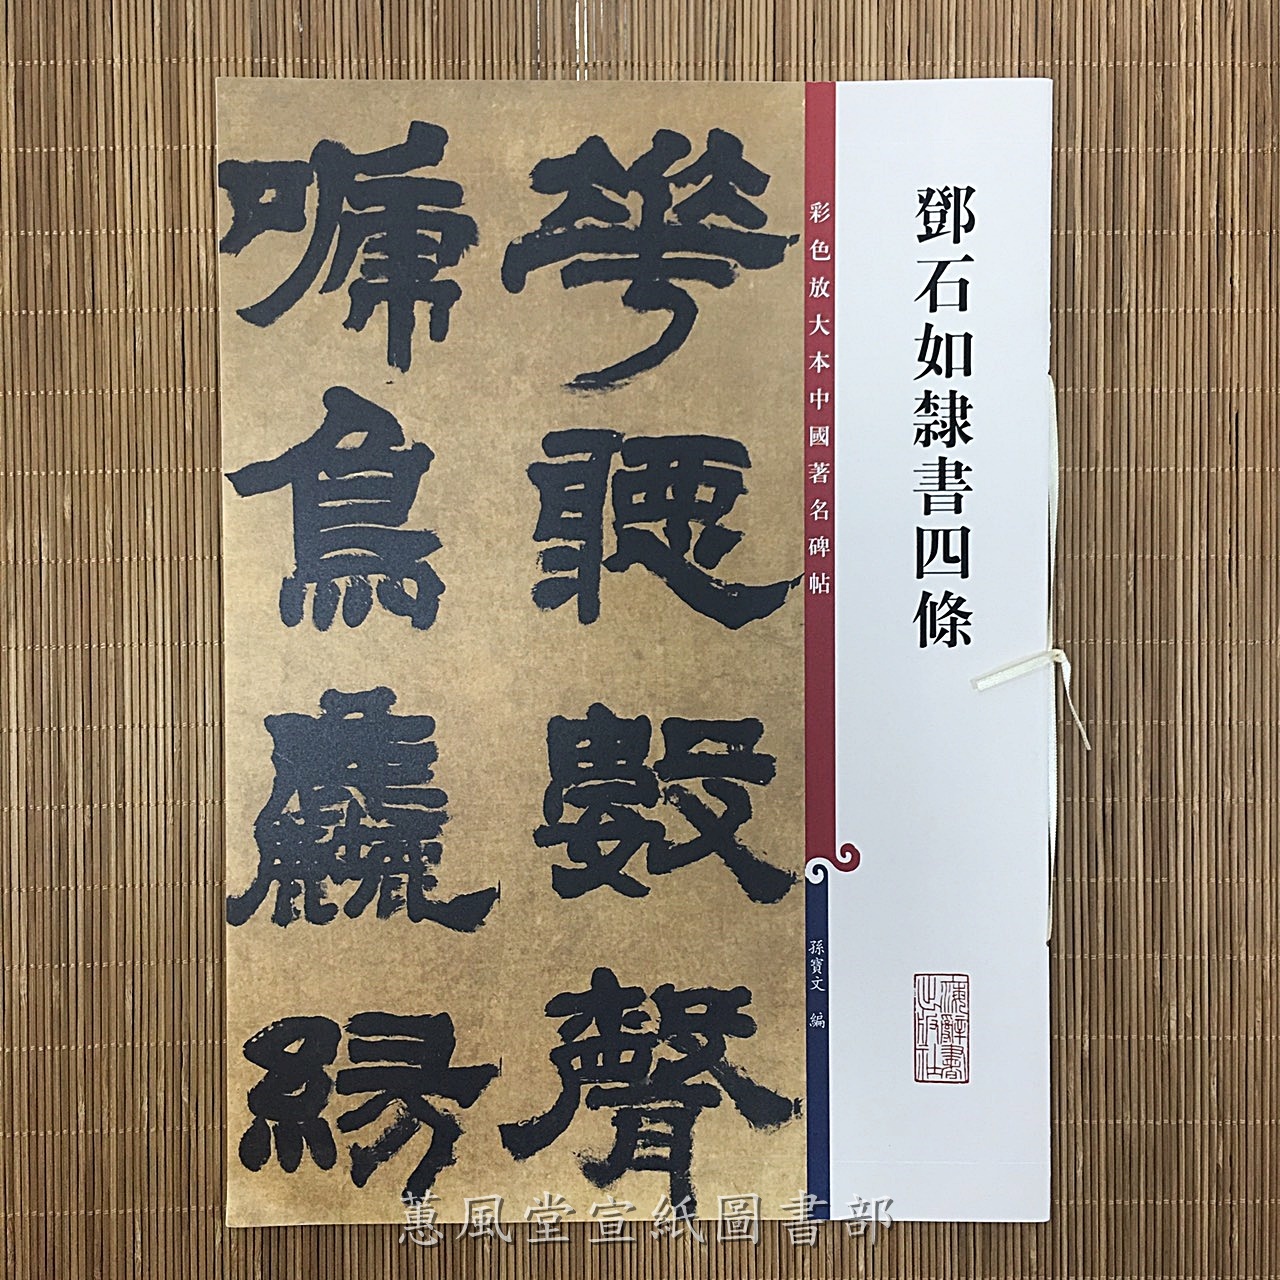 鄧石如隸書四條
彩色放大本中國著名碑帖
孫寶文 編
華聽數聲
嗁鳥麤
海辭書
出版社
蕙風堂宣紙圖書部